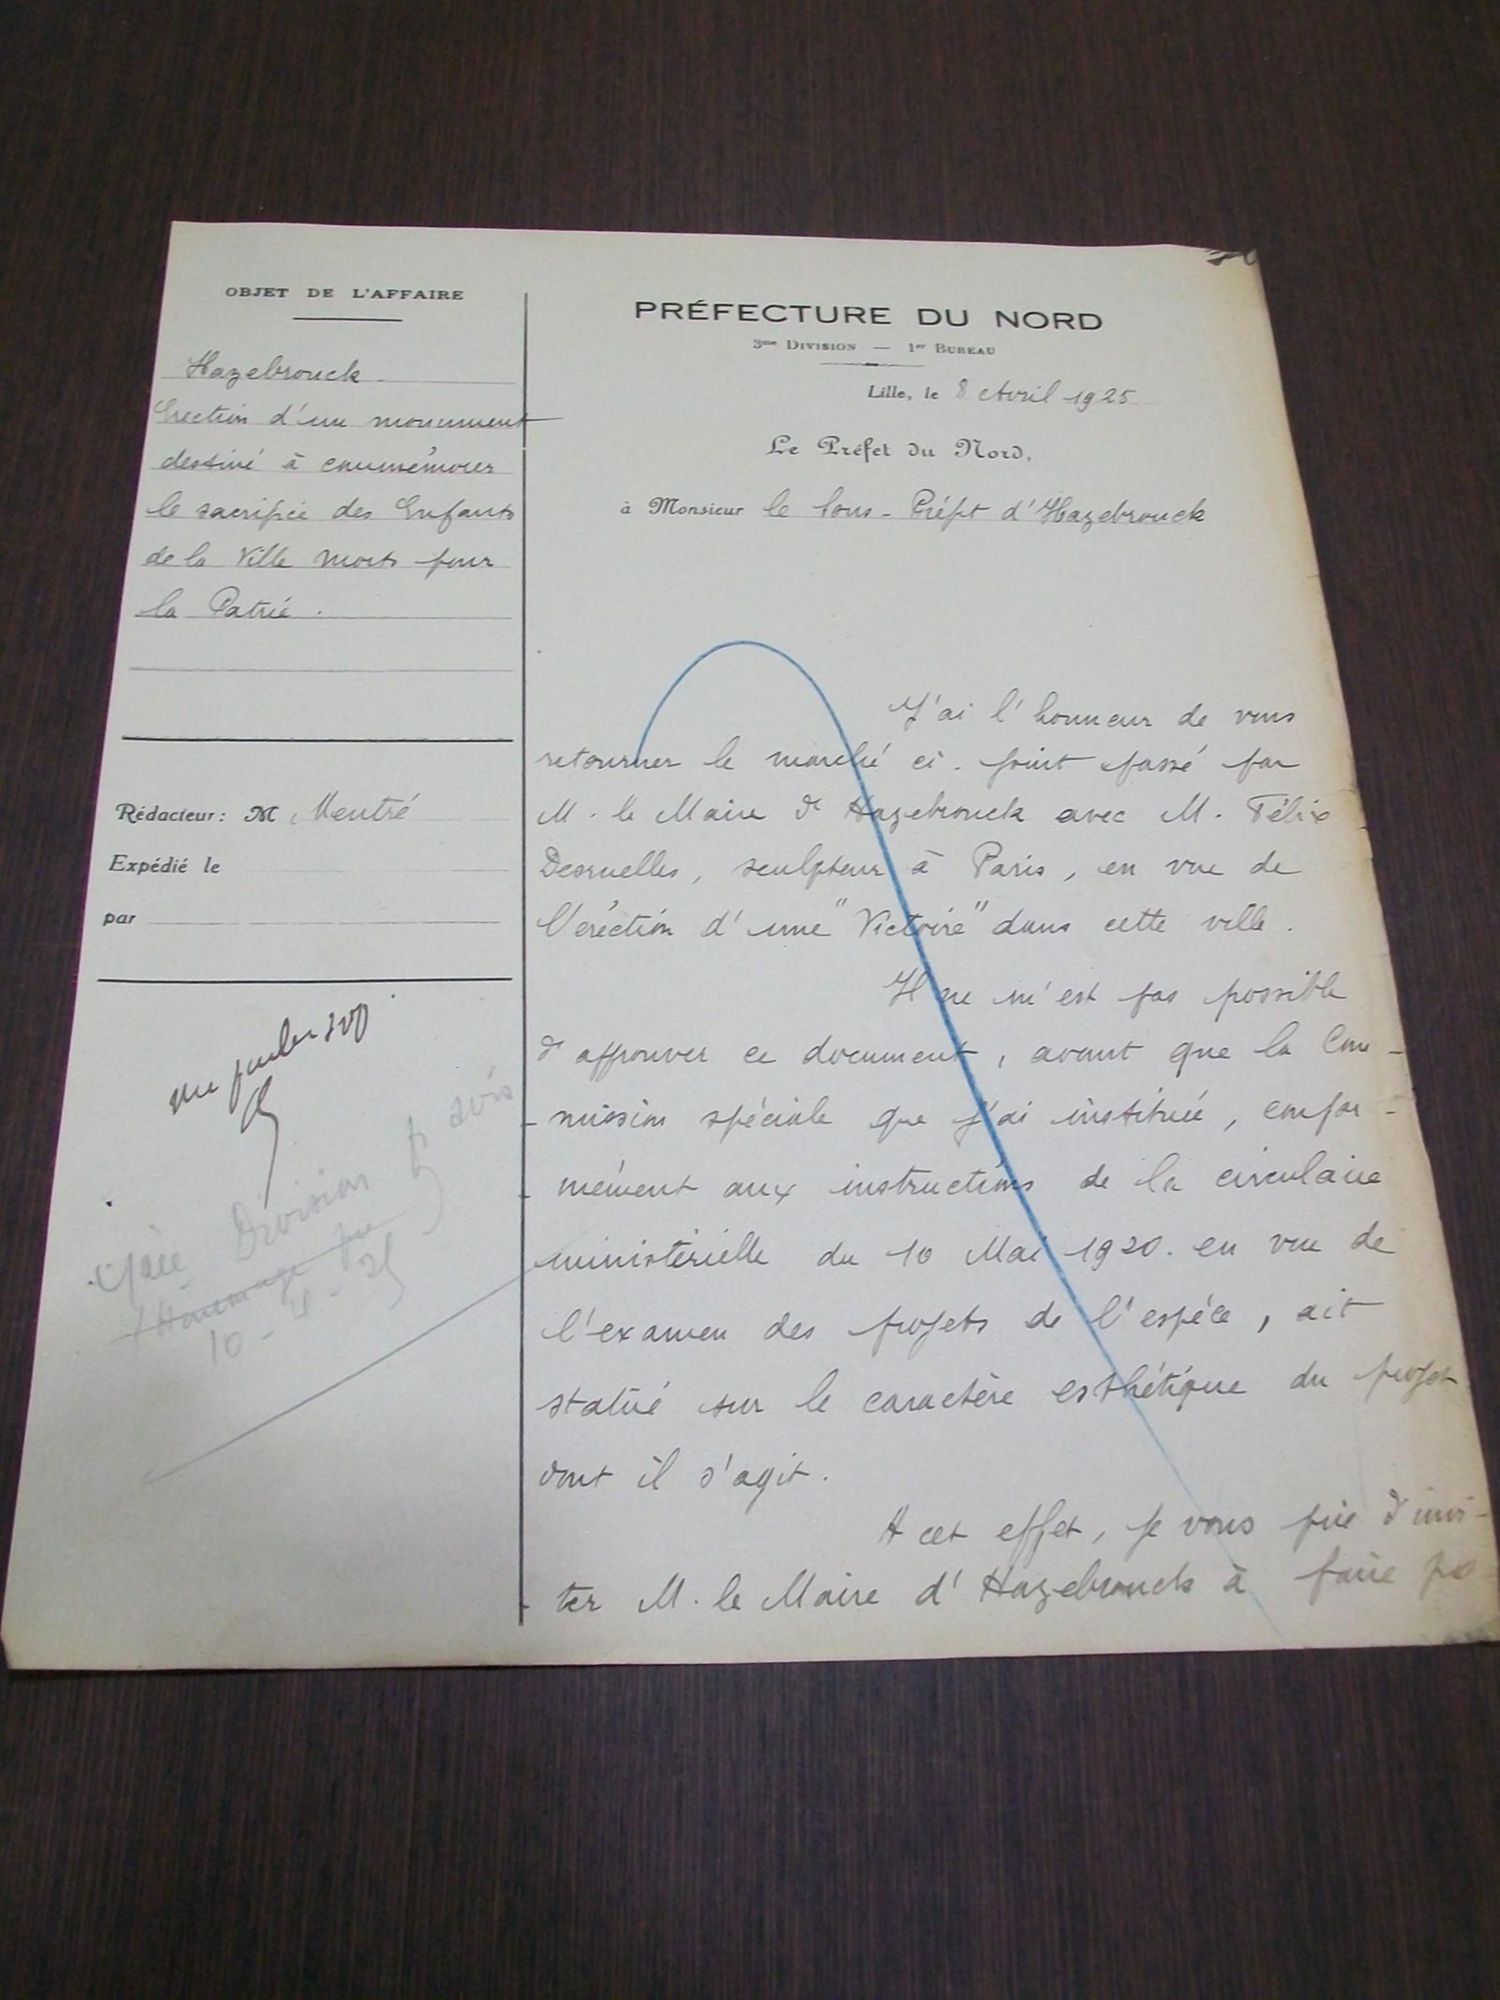 OBJET DE L'AFFAIRE
Hazebrouck
Erection d'un monument
destiné à commémorer
le sacrifice des Enfants
de la Ville morts pour
la Patrie.
Rédacteur: M Mentré
Expédié le
par
me parler svp
Division pr avis
10-4-25
PRÉFECTURE DU NORD
3me DIVISION — 1er BUREAU
Lille, le 8 Avril 1925
Le Préfet du Nord,
à Monsieur le Sous-Préfet d'Hazebrouck
J'ai l'honneur de vous
retourner le marché ci-joint passé par
M. le Maire d'Hazebrouck avec M. Félix
Desruelles, sculpteur à Paris, en vue de
l'érection d'une "Victoire" dans cette ville.
Il ne m'est pas possible
d'approuver ce document, avant que la Com-
-mission spéciale que j'ai instituée, confor-
-mément aux instructions de la circulaire
ministérielle du 10 Mai 1920. en vue de
l'examen des projets de l'espèce, ait
statué sur le caractère esthétique du projet
dont il s'agit.
A cet effet, je vous prie d'invi-
-ter M. le Maire d'Hazebrouck à faire